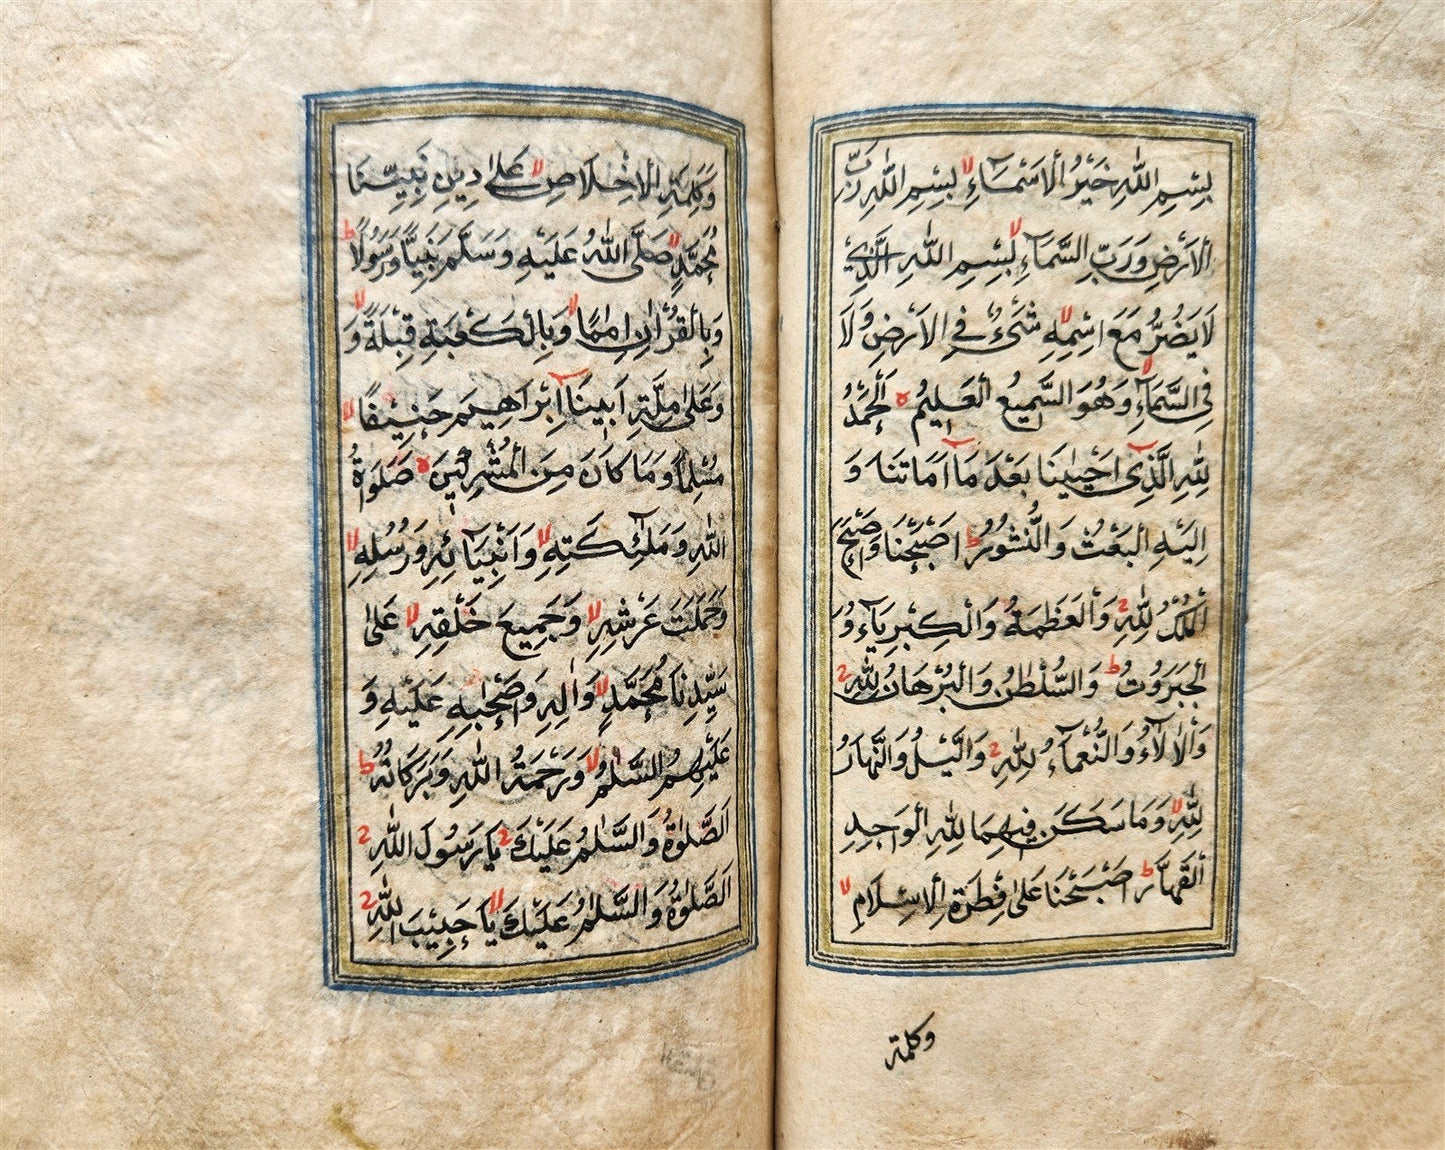 بِسْمِ اللّٰهِ خَيْرِ الْاَسْمَاءِ بِسْمِ اللّٰهِ رَبِّ
الْاَرْضِ وَرَبِّ السَّمَاءِ بِسْمِ اللّٰهِ الَّذِي
لَا يَضُرُّ مَعَ اسْمِهِ شَيْءٌ فِي الْاَرْضِ وَلَا
فِي السَّمَاءِ وَهُوَ السَّمِيعُ الْعَلِيمُ اَلْحَمْدُ
لِلّٰهِ الَّذِي اَحْيٰينَا بَعْدَ مَا اَمَاتَنَا وَ
اِلَيْهِ الْبَعْثُ وَالنُّشُورُ اَصْبَحْنَا وَاَصْبَحَ
الْمُلْكُ لِلّٰهِ وَالْعَظَمَةُ وَالْكِبْرِيَاءُ وَ
الْجَبَرُوتُ وَالسُّلْطٰنُ وَالْبُرْهَانُ لِلّٰهِ
وَالْاٰلَاءُ وَالنُّعَمَاءُ لِلّٰهِ وَالَّيْلُ وَالنَّهَارُ
لِلّٰهِ وَمَا سَكَنَ فِيهِمَا لِلّٰهِ الْوَاحِدِ
الْقَهَّارِ اَصْبَحْنَا عَلٰى فِطْرَةِ الْاِسْلَامِ
وكلمة
وَكَلِمَةِ الْاِخْلَاصِ عَلٰى دِيْنِ نَبِيِّنَا
مُحَمَّدٍ صَلَّى اللّٰهُ عَلَيْهِ وَسَلَّمَ نَبِيًّا وَرَسُولًا
وَبِالْقُرْاٰنِ اِمَامًا وَبِالْكَعْبَةِ قِبْلَةً وَ
وَعَلٰى مِلَّةِ اَبِينَا اِبْرَاهِيمَ حَنِيفًا
مُسْلِمًا وَمَا كَانَ مِنَ الْمُشْرِكِينَ صَلَوَاةُ
اللّٰهِ وَمَلٰئِكَتِهِ وَاَنْبِيَائِهِ وَرُسُلِهِ
وَحَمَلَتِ عَرْشِهِ وَجَمِيعِ خَلْقِهِ عَلٰى
سَيِّدِنَا مُحَمَّدٍ وَاٰلِهِ وَصَحْبِهِ عَلَيْهِ وَ
عَلَيْهِمُ السَّلٰمُ وَرَحْمَةُ اللّٰهِ وَبَرَكَاتُهُ
اَلصَّلٰوةُ وَالسَّلٰمُ عَلَيْكَ يَا رَسُولَ اللّٰهِ
اَلصَّلٰوةُ وَالسَّلٰمُ عَلَيْكَ يَا حَبِيْبَ اللّٰهِ